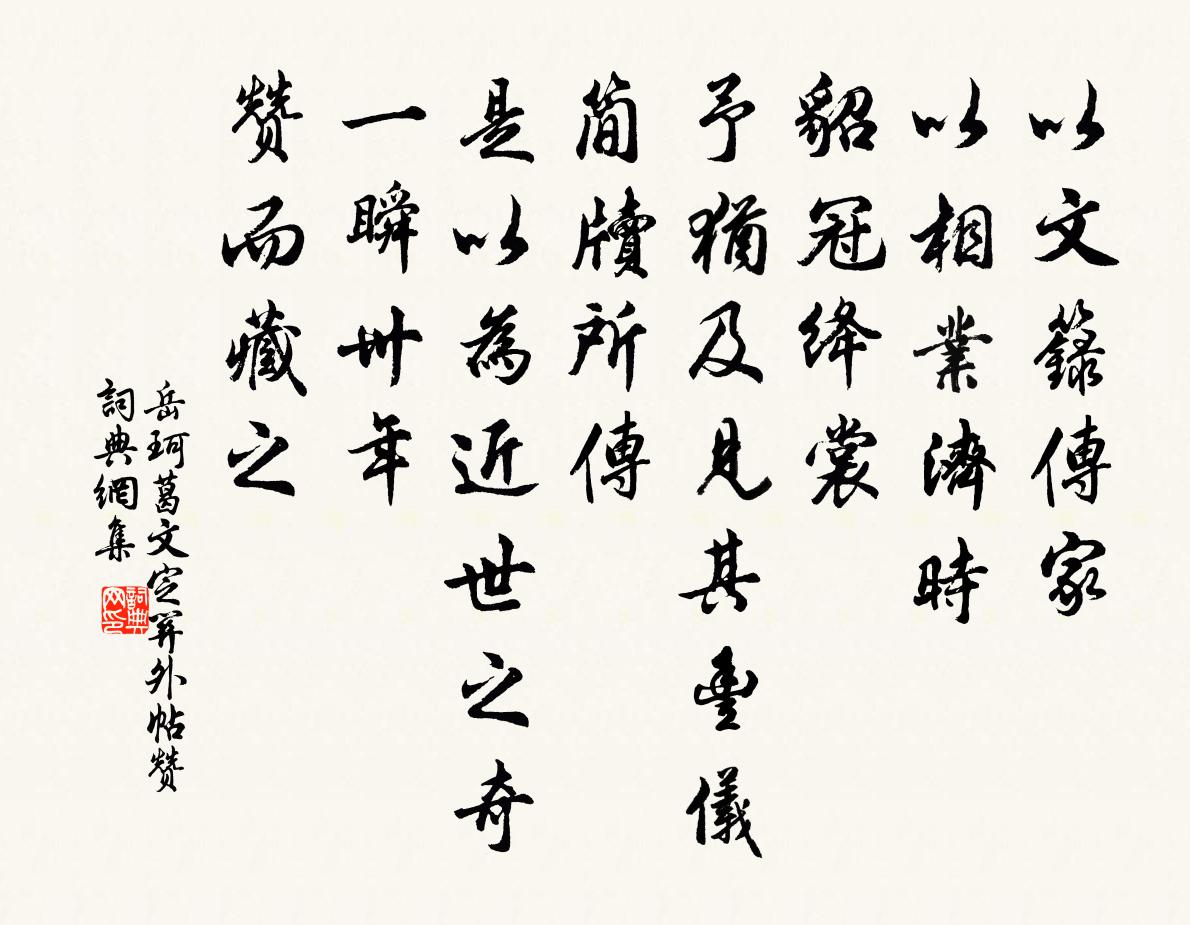 以文籙傳家
以相業濟時
貂冠絳裳
予猶及見其豐儀
簡牘所傳
是以為近世之奇
一瞬卅年
贊而藏之
岳珂葛文定罪外帖贊
詞典網集
詞典网印